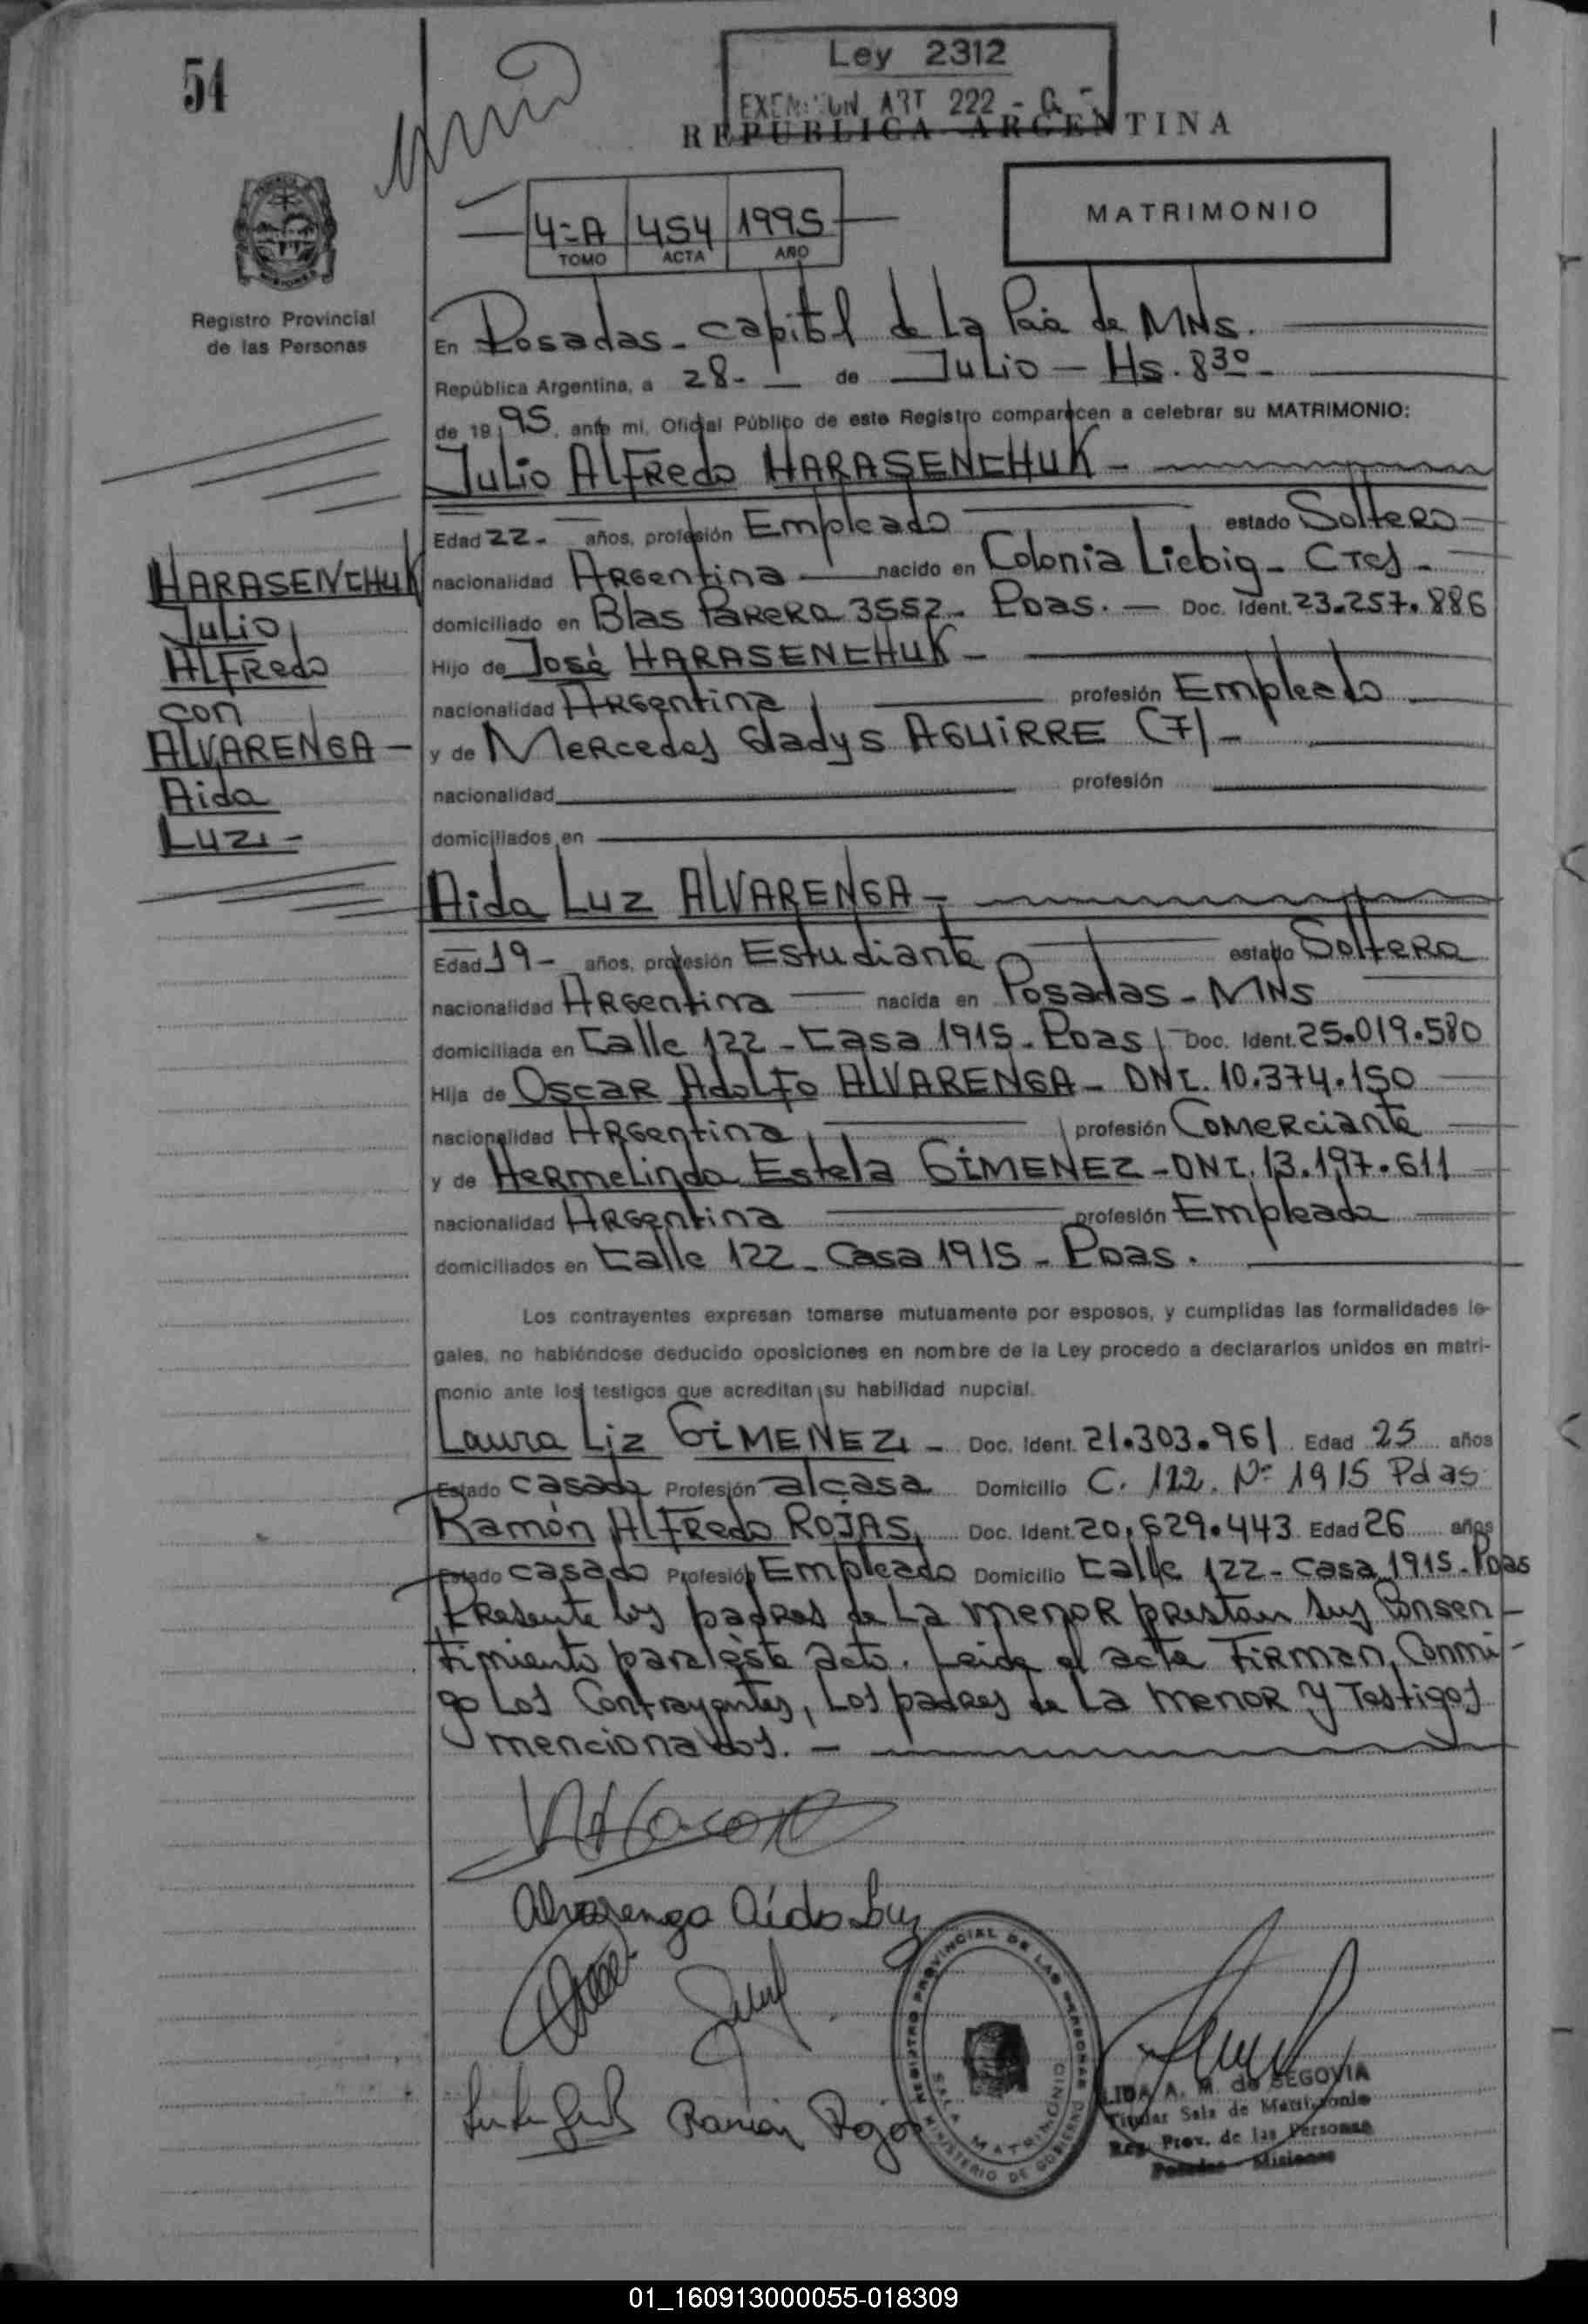 54
Ley 2312
EXENCION ART 222 - C
REPUBLICA ARGENTINA
4-A 454 1995
TOMO ACTA AÑO
MATRIMONIO
Registro Provincial
de las Personas
En Posadas - Capital de La Pcia de MNS.
República Argentina, a 28- de Julio - Hs. 830 -
de 19 95, ante mi, Oficial Público de este Registro comparecen a celebrar su MATRIMONIO:
Julio Alfredo HARASENCHUK -
Edad 22 - años, profesión Empleado estado Soltero
nacionalidad Argentina nacido en Colonia Liebig - Ctes -
domiciliado en Blas Parera 3552 - Pdas. - Doc. Ident. 23.257.886
Hijo de José HARASENCHUK -
nacionalidad Argentina profesión Empleado
y de Mercedes Gladys AGUIRRE (7) -
nacionalidad profesión
domiciliados en
HARASENCHUK
Julio
Alfredo
con
ALVARENGA -
Aida
Luz -
Aida Luz ALVARENGA -
Edad 19 - años, profesión Estudiante estado Soltera
nacionalidad Argentina nacida en Posadas - MNS
domiciliada en Calle 122 - Casa 1915 - Pdas Doc. Ident. 25.019.580
Hija de Oscar Adolfo ALVARENGA - DNI. 10.374.150
nacionalidad Argentina profesión Comerciante
y de Hermelinda Estela GIMENEZ - DNI. 13.197.611
nacionalidad Argentina profesión Empleada
domiciliados en Calle 122 - Casa 1915 - Pdas.
Los contrayentes expresan tomarse mutuamente por esposos, y cumplidas las formalidades le-
gales, no habiéndose deducido oposiciones en nombre de la Ley procedo a declararlos unidos en matri-
monio ante los testigos que acreditan su habilidad nupcial.
Laura Liz GIMENEZ - Doc. Ident. 21.303.961 Edad 25 años
Estado casada Profesión al casa Domicilio C. 122. Nº 1915 Pdas
Ramón Alfredo ROJAS, Doc. Ident. 20.629.443 Edad 26 años
Estado casado Profesión Empleado Domicilio Calle 122 - Casa 1915 - Pdas
Presente los padres de La menor prestan sus Consen-
timiento para éste acto. Leida el acta Firman Conmi-
go Los Contrayentes, Los padres de La menor y Testigos
mencionados. -
Alvarenga Aída Luz
Ramón Rojas
REGISTRO PROVINCIAL DE LAS PERSONAS
SALA MATRIMONIO
MINISTERIO DE GOBIERNO
LIDA A. M. de SEGOVIA
Titular Sala de Matrimonio
Reg. Prov. de las Personas
Posadas - Misiones
01_160913000055-018309